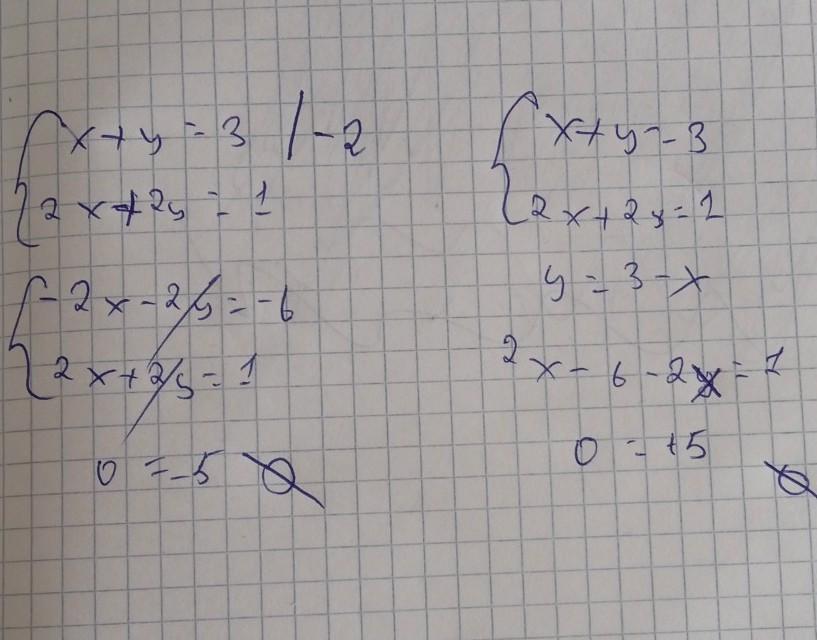 x+y = 3 /-2
2x+2y = 1
-2x-2y = -6
2x+2y = 1
0 = -5 Ø
x+y = 3
2x+2y = 1
y = 3-x
2x - 6 - 2x = 1
0 = +5
Ø